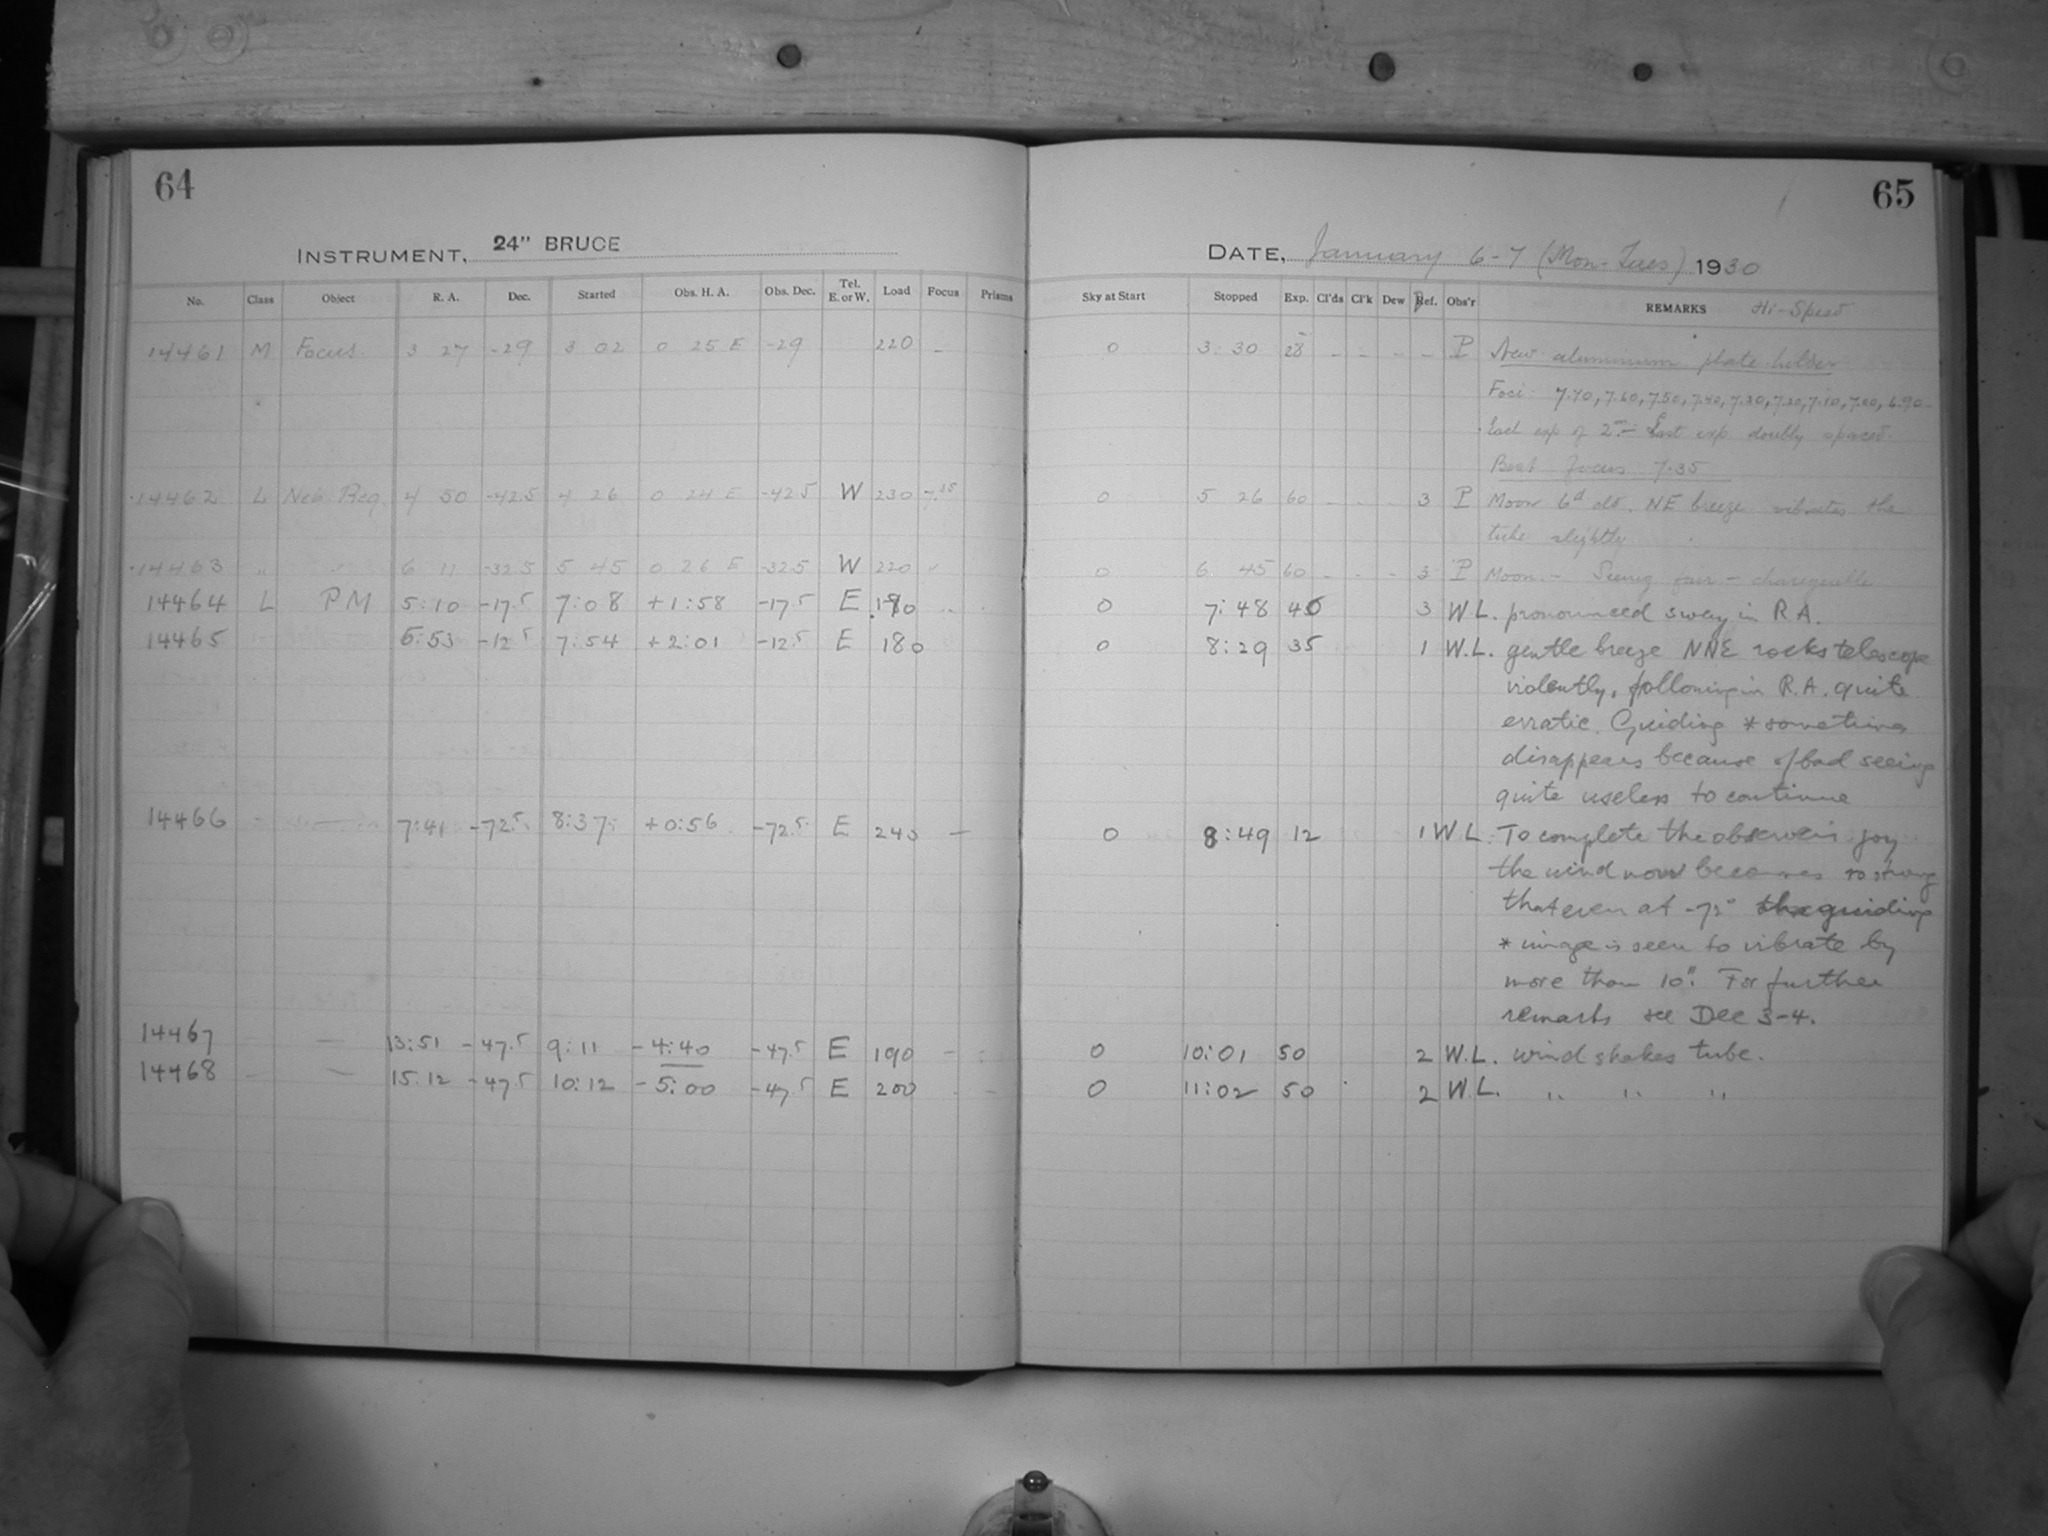 64
INSTRUMENT, 24" BRUCE
No. Class Object R. A. Dec. Started Obs. H. A. Obs. Dec. Tel. E. or W. Load Focus Prisms
14461 M Focus. 3 27 -29 3 02 0 25 E -29 220 -
14462 L Neb Reg. 4 50 -42.5 4 26 0 24 E -42.5 W 230 7.35
14463 " 6 11 -32.5 5 45 0 26 E -32.5 W 220 "
14464 L PM 5:10 -17.5 7:08 +1:58 -17.5 E 190
14465 5:53 -12.5 7:54 +2:01 -12.5 E 180
14466 7:41 -72.5 8:37 +0:56 -72.5 E 240 -
14467 - 13:51 -47.5 9:11 -4:40 -47.5 E 190 -
14468 - - 15:12 -47.5 10:12 -5:00 -47.5 E 200
65
DATE, January 6-7 (Mon-Tues) 1930
Sky at Start Stopped Exp. Cl'ds Cl'k Dew Ref. Obs'r REMARKS Hi-Speed
0 3:30 28 - - - - P New aluminium plate-holder
Foci: 7.70, 7.60, 7.50, 7.40, 7.30, 7.20, 7.10, 7.00, 6.90-
Each exp of 2m - Last exp doubly spaced.
Best focus 7.35
0 5 26 60 - - - 3 P Moon 6d old. NE breeze vibrates the
tube slightly
0 6 45 60 - - - 3 P Moon. - Seeing fair - changeable
0 7:48 40 3 W.L. pronounced sway in R.A.
0 8:29 35 1 W.L. gentle breeze NNE rocks telescope
violently, following in R.A. quite
erratic. Guiding * sometimes
disappears because of bad seeing
quite useless to continue
0 8:49 12 1 W.L. To complete the observer's joy
the wind now becomes so strong
that even at -75° the guiding
* image is seen to vibrate by
more than 10". For further
remarks see Dec 3-4.
0 10:01 50 2 W.L. wind shakes tube.
0 11:02 50 2 W.L. " " "